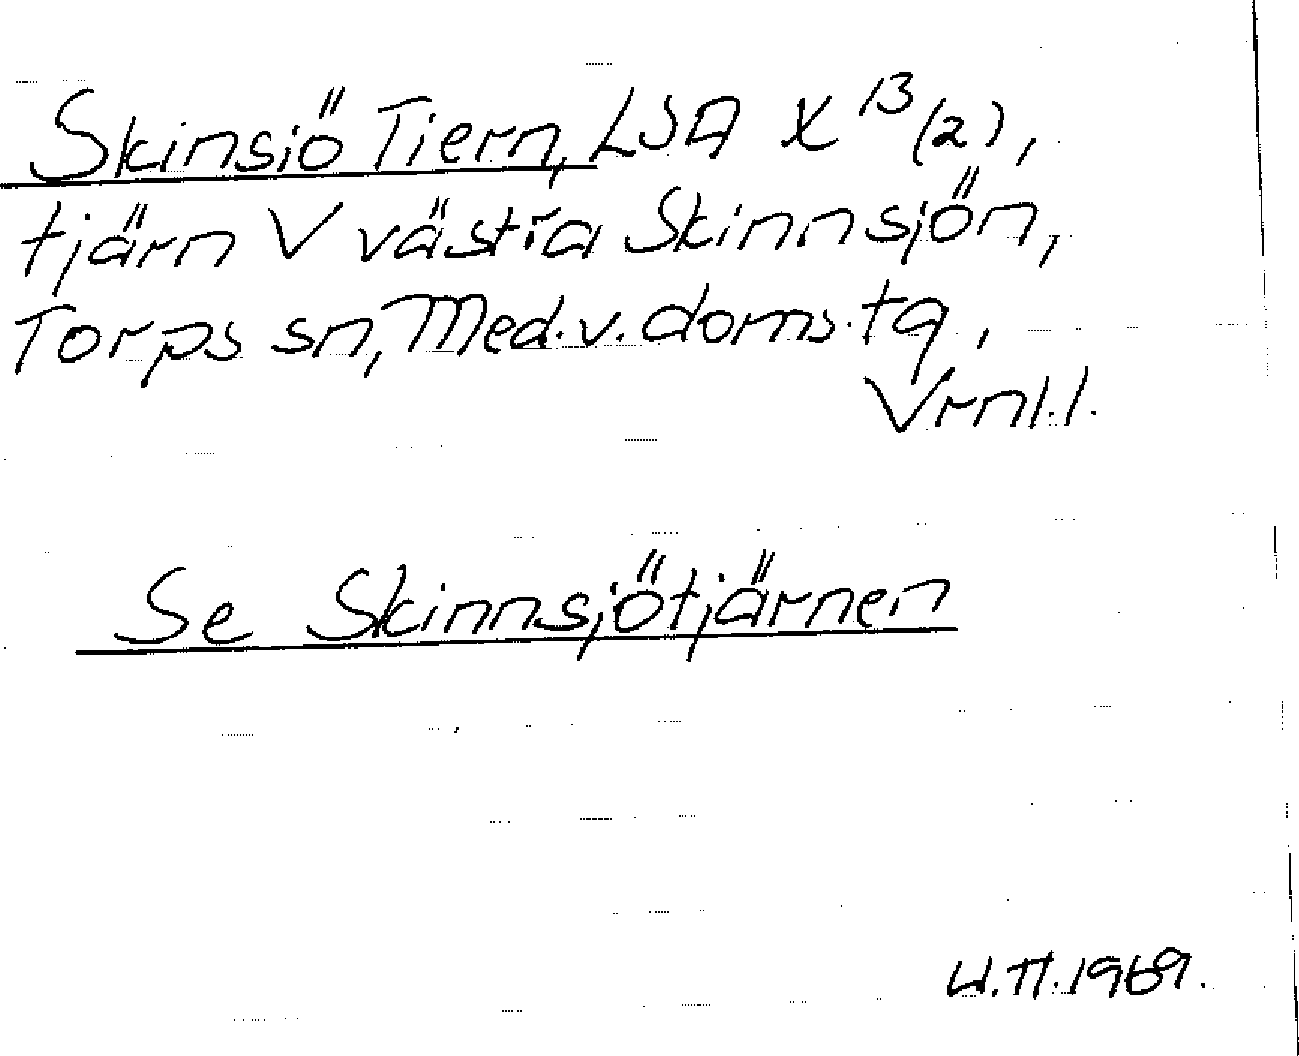 Skinsiö Tiern, LSA X 13 (2),
tjärn V västra Skinnsjön,
Torps sn, Med.v. doms. tg,
Vrnl.l.
Se Skinnsjötjärnen
U.H.1969.